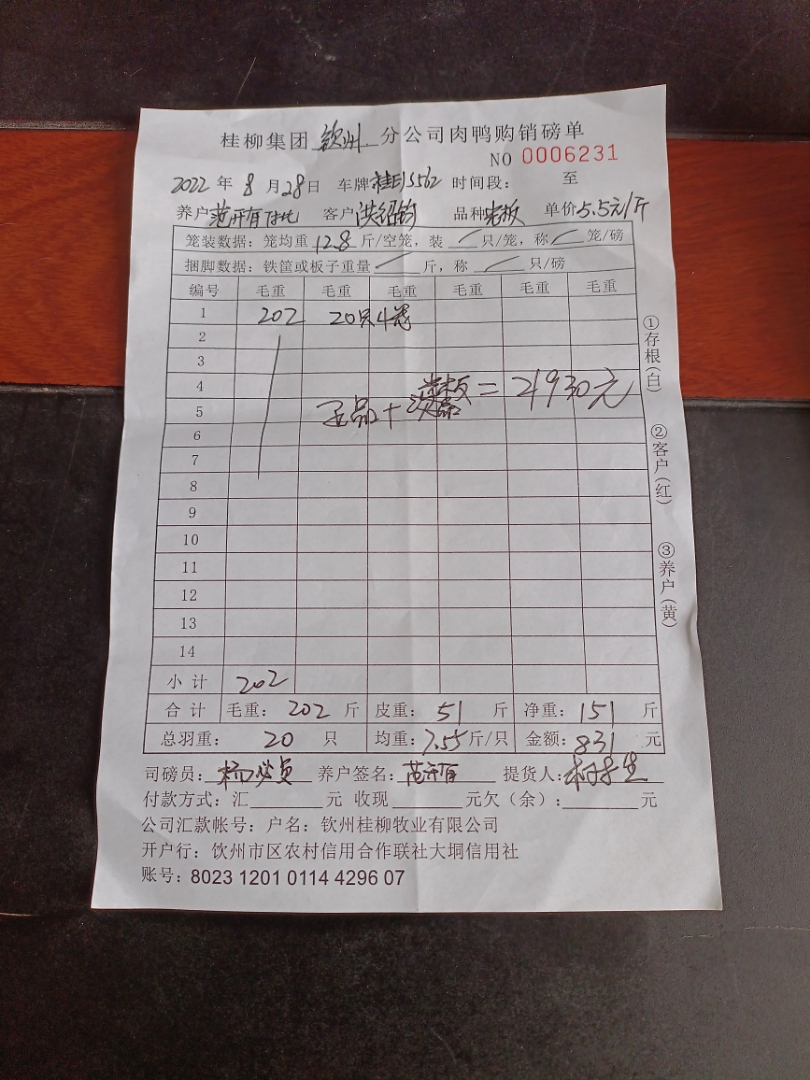 桂柳集团 钦州 分公司肉鸭购销磅单
NO 0006231
2022 年 8 月 28 日 车牌 桂 5562 时间段: 至
养户 范开有 客户 洪绍钧 品种 老板 单价 5.5元/斤
笼装数据:笼均重 12.8 斤/空笼,装 / 只/笼,称 / 笼/磅
捆脚数据:铁筐或板子重量 / 斤,称 / 只/磅
编号 毛重 毛重 毛重 毛重 毛重 毛重
1 202 20只4笼
2
3
4
5 正品+ = 21930元
6
7
8
9
10
11
12
13
14
小计 202
合计 毛重: 202 斤 皮重: 51 斤 净重: 151 斤
总羽重: 20 只 均重: 7.55 斤/只 金额: 831 元
司磅员: 杨 养户签名: 范开有 提货人:
付款方式:汇 元 收现 元欠(余): 元
公司汇款帐号:户名:钦州桂柳牧业有限公司
开户行:饮州市区农村信用合作联社大垌信用社
账号:8023 1201 0114 4296 07
①存根(白)
②客户(红)
③养户(黄)